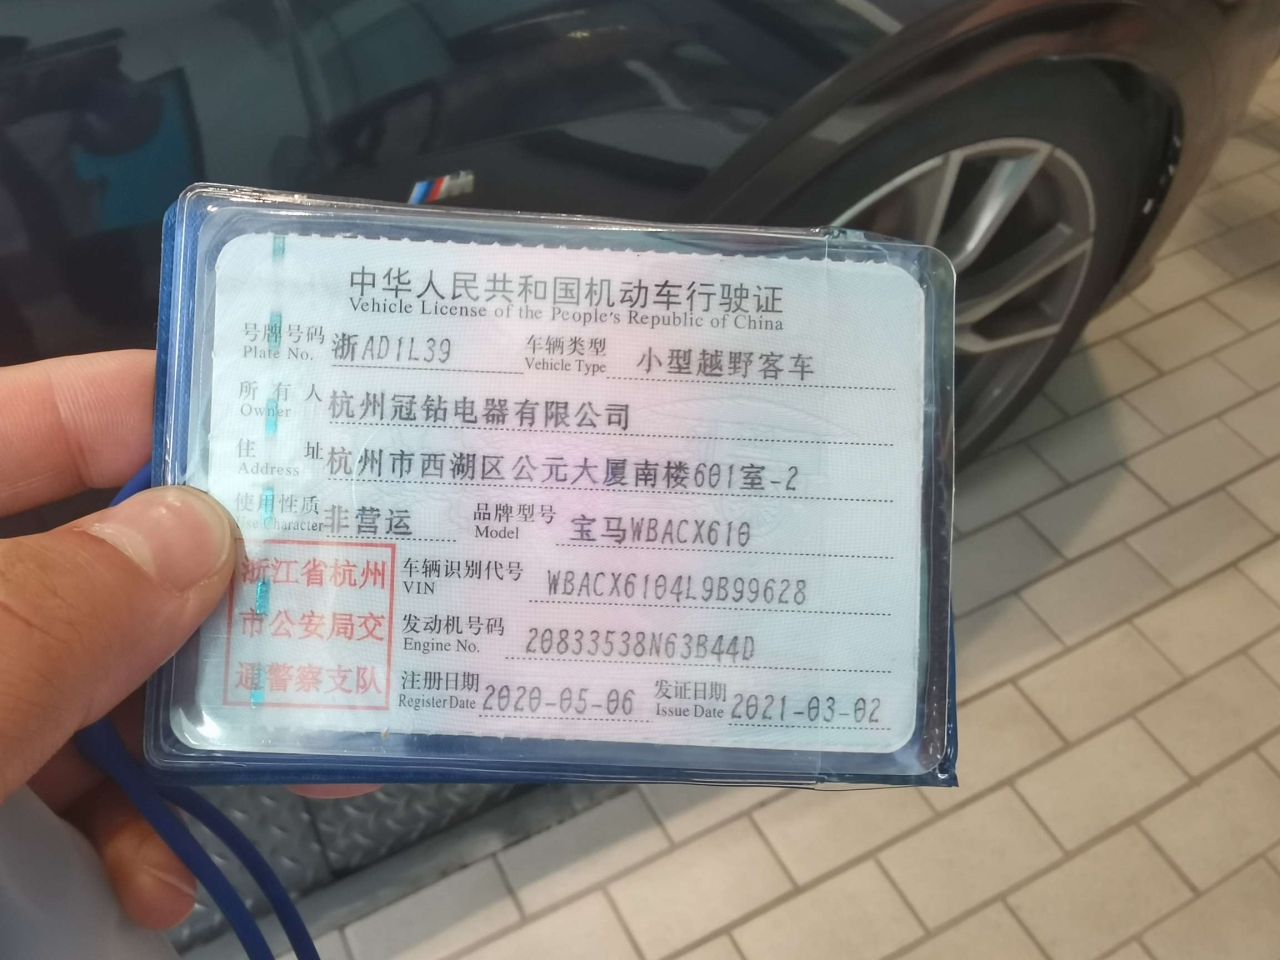 中华人民共和国机动车行驶证
Vehicle License of the People's Republic of China
号牌号码 浙AD1L39 车辆类型 小型越野客车
Plate No. Vehicle Type
所有人 杭州冠钻电器有限公司
Owner
住址 杭州市西湖区公元大厦南楼601室-2
Address
使用性质 非营运 品牌型号 宝马WBACX610
Use Character Model
浙江省杭州
市公安局交
通警察支队
车辆识别代号 WBACX6104L9B99628
VIN
发动机号码 20833538N63B44D
Engine No.
注册日期 2020-05-06 发证日期 2021-03-02
Register Date Issue Date